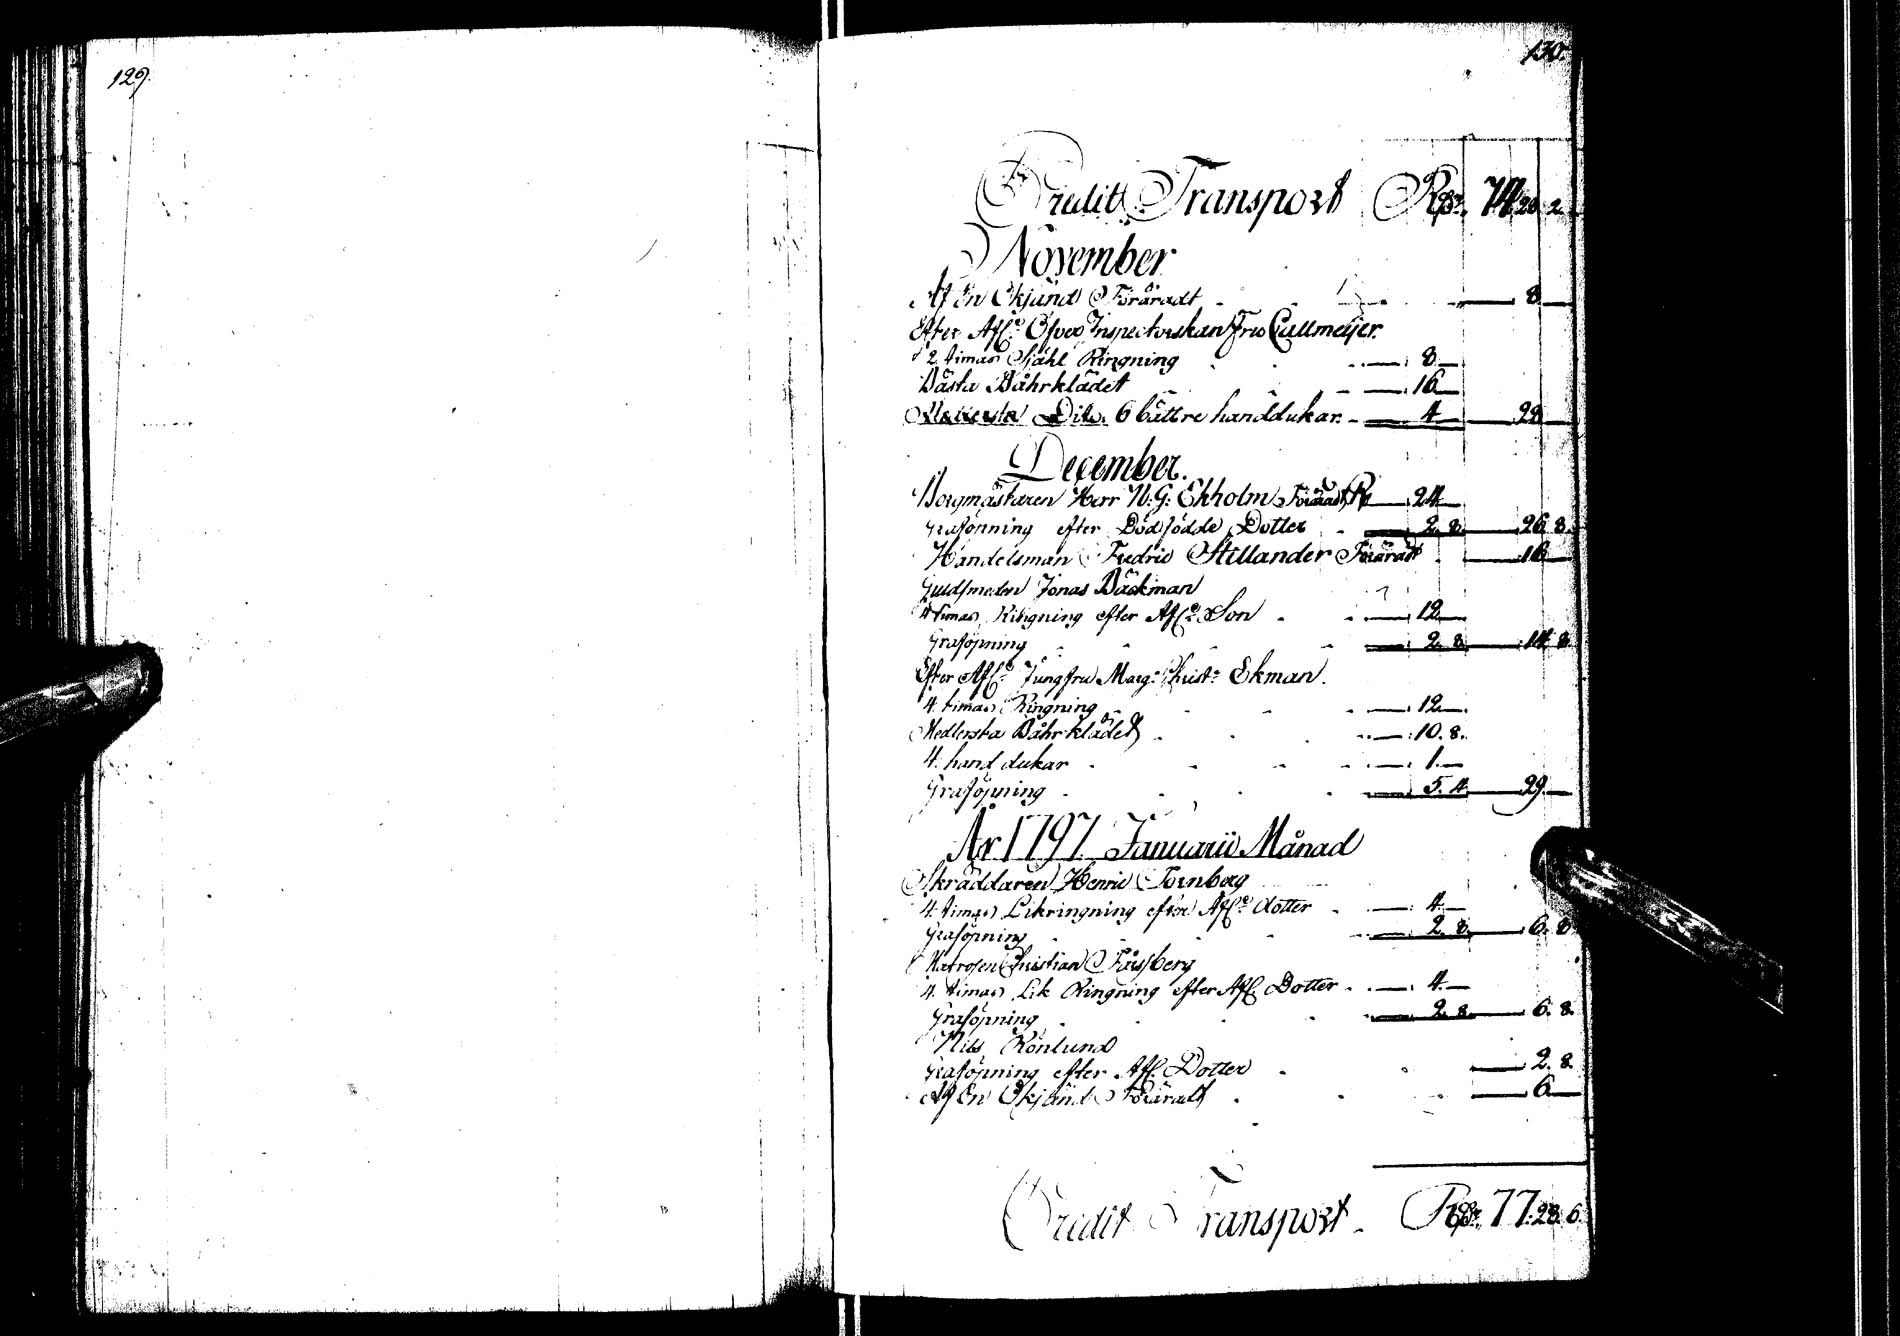 129.
130.
Credit Transport Rdr. 74 20 2
November
Af En Okjänd Föräradt 8
Efter Afl:e Öfver Inspectorskan Fru Cullmeijer.
2 timar Själe Ringning 8
Bästa Bårklädet 16
Dito. 6 bättre handdukar. 4 28
December.
Borgmästaren Herr N: G: Ekholm Föräradt 24
Graföpning efter Dödfödde Dotter 2. 8. 26 8.
Handelsman Fredric Stillander Föräradt 16
Guldsmeden Jonas Bäckman
4 timas Ringning efter Afl:e Son 12
Graföpning 2. 8. 14. 8.
Efter Afl:e Jungfru Marg: Christ: Ekman.
4. timas Ringning 12
Medlersta Båhrklädet 10. 8.
4. hand dukar 1.
Graföpning 5. 4 29.
År 1797 Januarii Månad
Skräddaren Henric Törnberg
4. timas Likringning efter Afl:e dotter 4
Graföpning 2. 8. 6. 8
Matrosen Christian
4. timas Lik Ringning efter Afl. Dotter 4
Graföpning 2. 8. 6. 8.
Nils Rönlund
Graföpning efter Afl. Dotter 2. 8.
Af En Okjänd Föräradt 6
Credit Transport Rdr. 77. 28. 6.